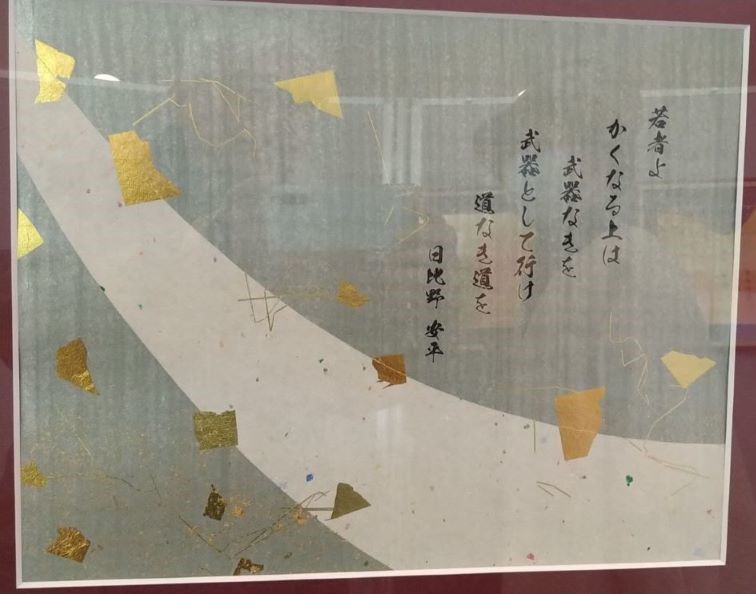 若者よ
かくなる上は
武器なきを
武器として行け
道なき道を
日比野 安平